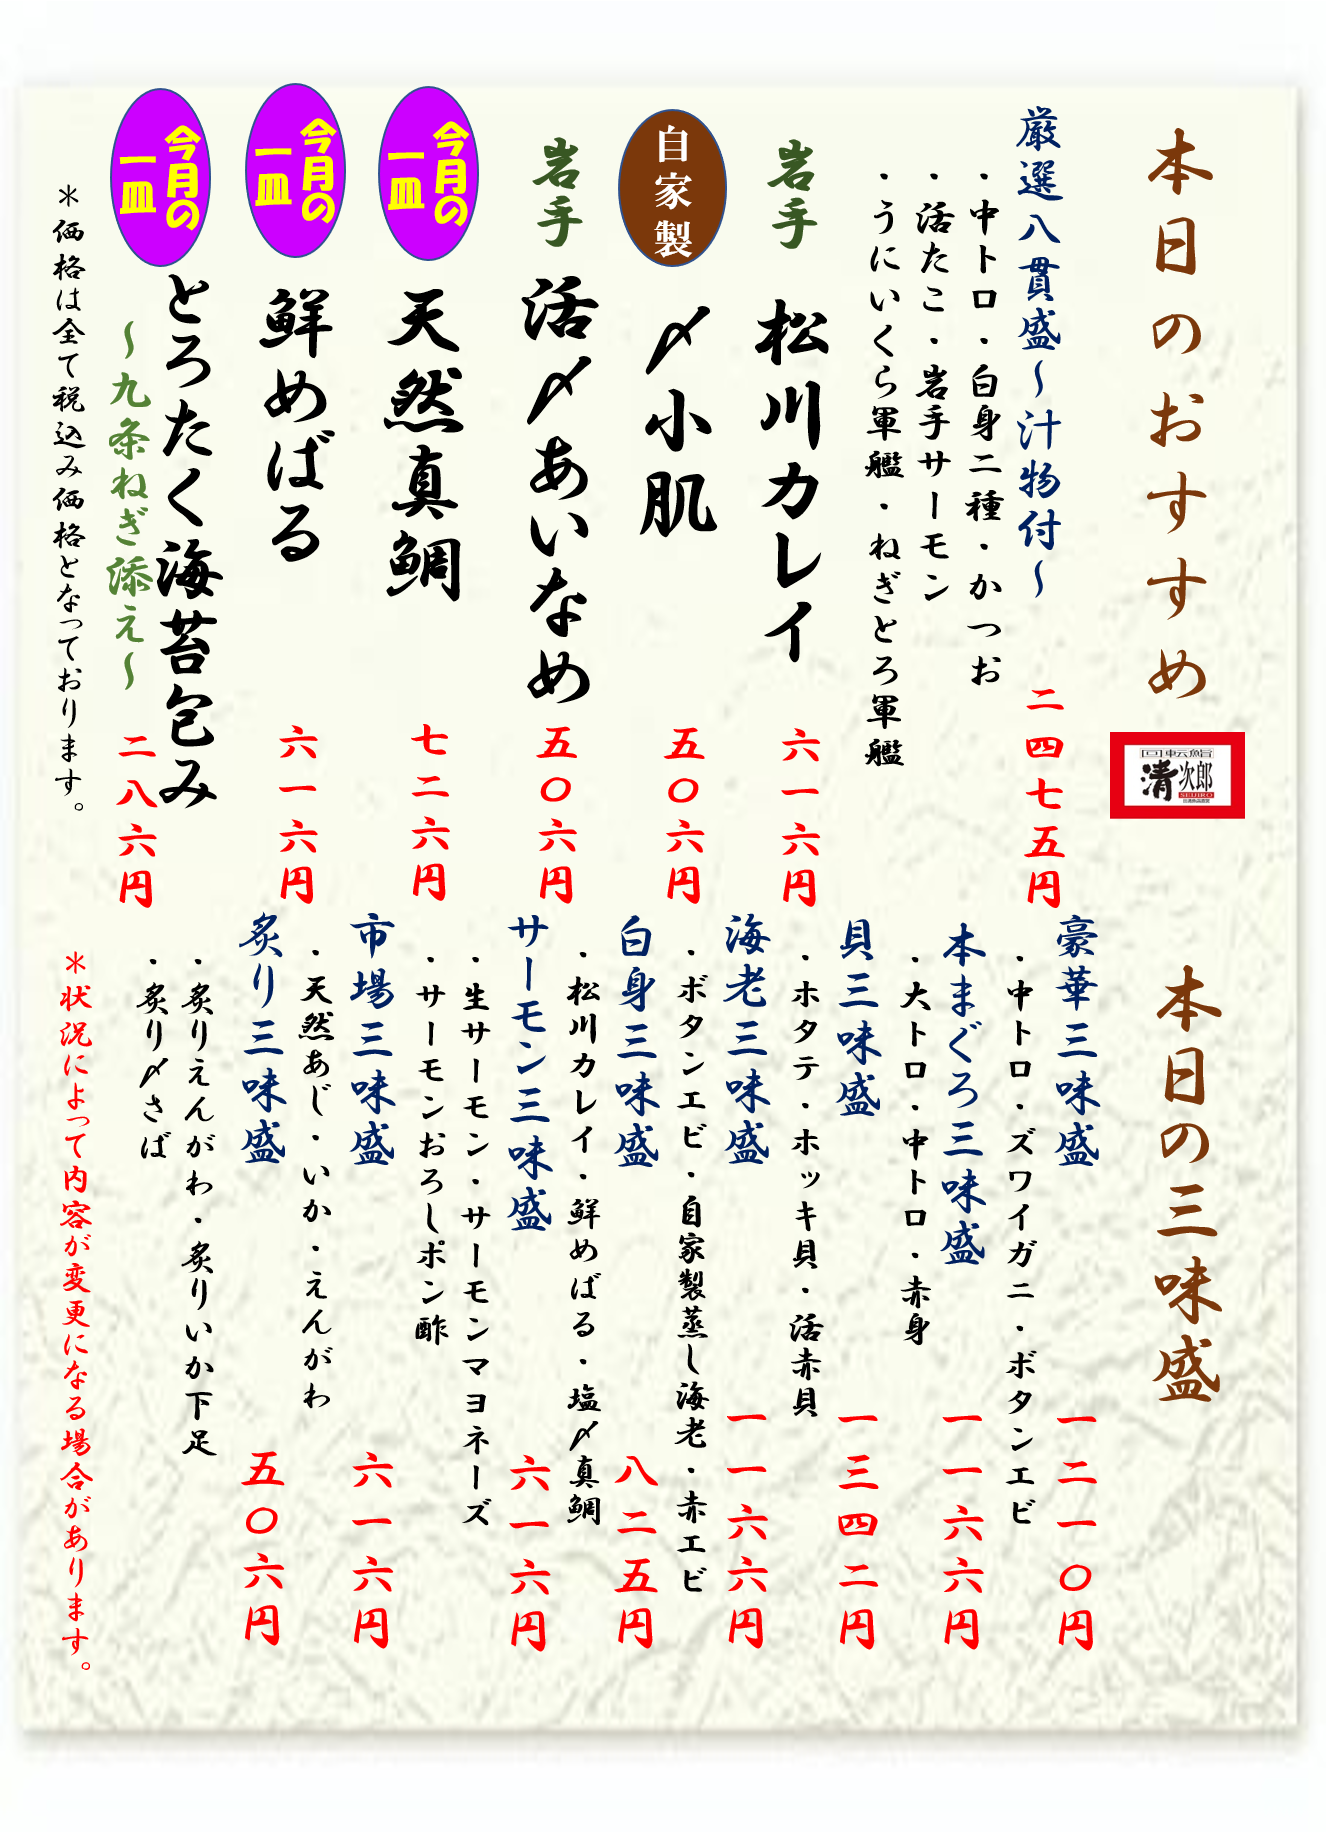 本日のおすすめ
回転鮨
清次郎
SEIJIRO
厳選八貫盛～汁物付～
二四七五円
・中トロ・白身二種・かつお
・活たこ・岩手サーモン
・うにいくら軍艦・ねぎとろ軍艦
岩手
松川カレイ
六一六円
自家製
〆小肌
五〇六円
岩手
活〆あいなめ
五〇六円
今月の
一皿
天然真鯛
七二六円
今月の
一皿
鮮めばる
六一六円
今月の
一皿
とろたく海苔包み
～九条ねぎ添え～
二八六円
＊価格は全て税込み価格となっております。
本日の三味盛
豪華三味盛
一二一〇円
・中トロ・ズワイガニ・ボタンエビ
本まぐろ三味盛
一一六六円
・大トロ・中トロ・赤身
貝三味盛
一三四二円
・ホタテ・ホッキ貝・活赤貝
海老三味盛
一一六六円
・ボタンエビ・自家製蒸し海老・赤エビ
白身三味盛
八二五円
・松川カレイ・鮮めばる・塩〆真鯛
サーモン三味盛
六一六円
・生サーモン・サーモンマヨネーズ
・サーモンおろしポン酢
市場三味盛
六一六円
・天然あじ・いか・えんがわ
炙り三味盛
五〇六円
・炙りえんがわ・炙りいか下足
・炙り〆さば
＊状況によって内容が変更になる場合があります。